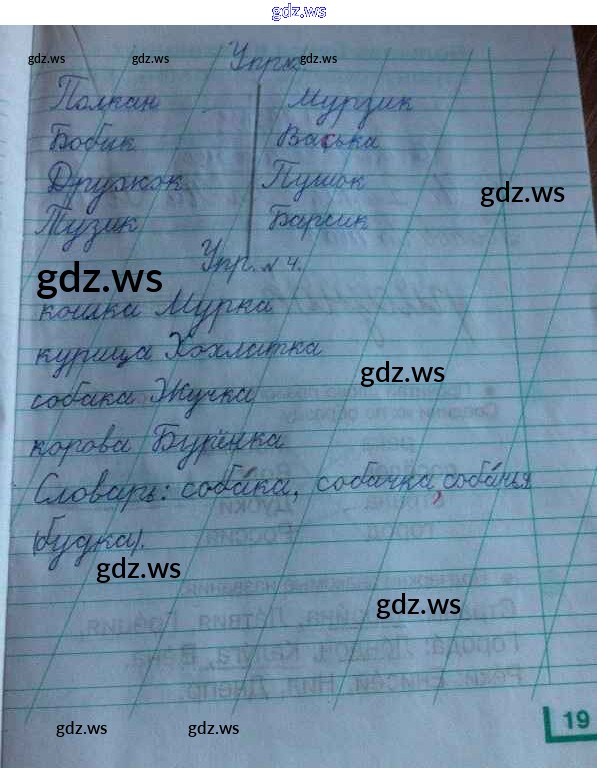 gdz.ws
gdz.ws gdz.ws gdz.ws
Упр.
Полкан Мурзик
Бобик Васька
Дружок Пушок
gdz.ws
Тузик Барсик
Упр. № 4.
gdz.ws
кошка Мурка
курица Хохлатка
gdz.ws
собака Жучка
корова Бурёнка
Словарь: соба́ка, собачка, соба́чья
(будка).
gdz.ws
gdz.ws
19
gdz.ws gdz.ws